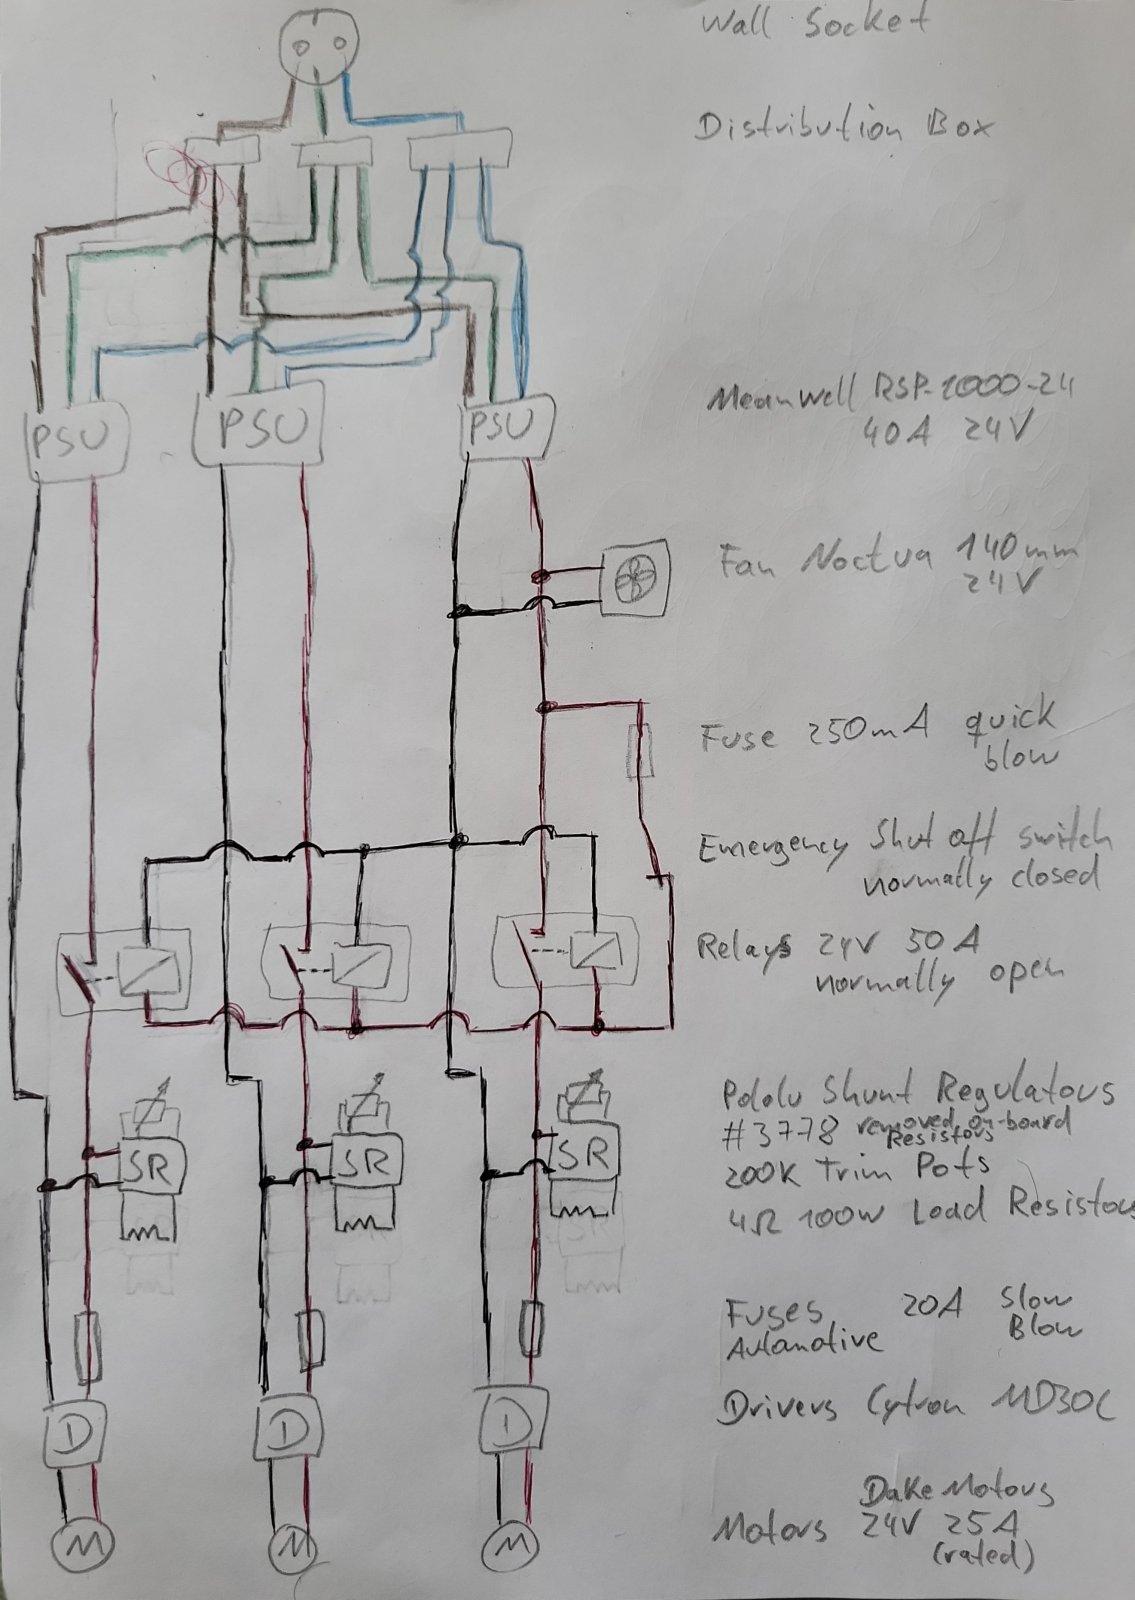 Wall Socket
Distribution Box
PSU
PSU
PSU
Meanwell RSP-1000-24
40A 24V
Fan Noctua 140mm
24V
Fuse 250mA quick
blow
Emergency Shut off switch
normally closed
Relays 24V 50A
normally open
SR
SR
SR
Pololu Shunt Regulators
#3778 removed on-board
Resistors
200K Trim Pots
4Ω 100W Load Resistors
Fuses 20A Slow
Automotive Blow
D
D
D
Drivers Cytron MD30C
M
M
M
Dake Motors
Motors 24V 25A
(rated)